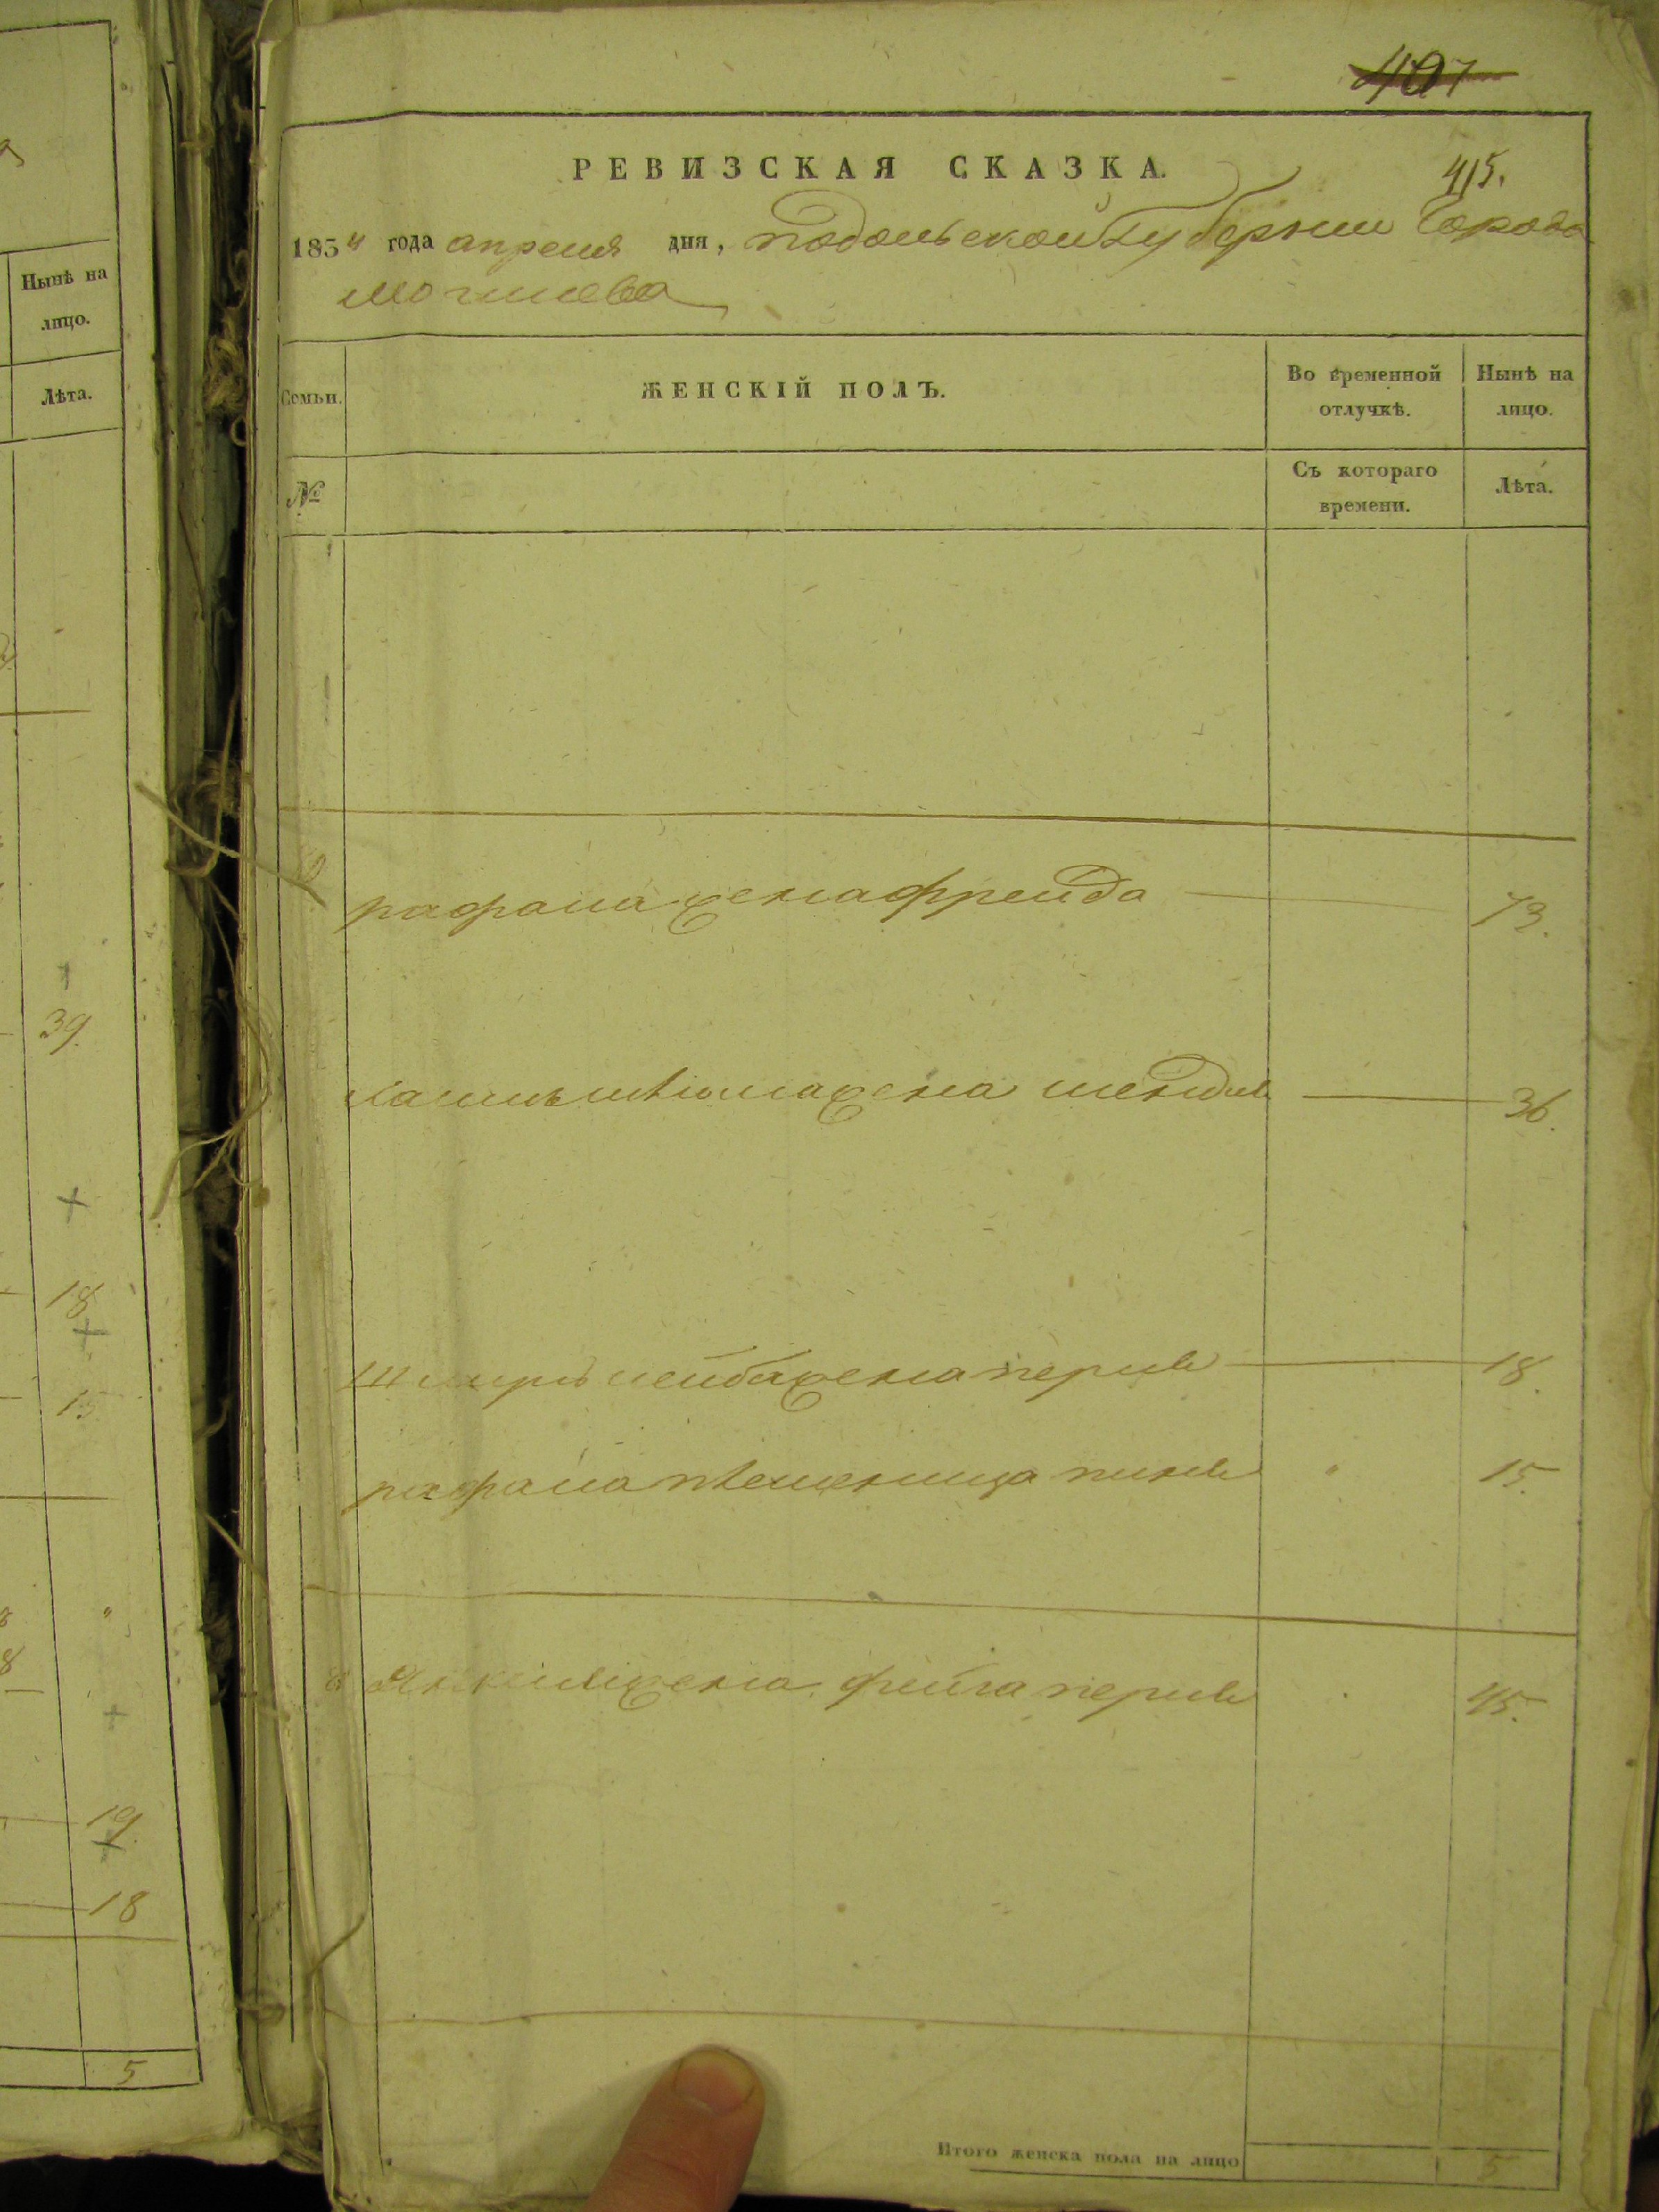 Нынѣ на
лицо.
Лѣта.
39.
18
15
19.
18
5
407
РЕВИЗСКАЯ СКАЗКА.
415.
1854 года апреля дня, подольской губернии города
могилева
Семьи.
ЖЕНСКІЙ ПОЛЪ.
Во временной
отлучкѣ.
Нынѣ на
лицо.
№
Съ котораго
времени.
Лѣта.
рафала жена фрейда 73.
жена 36.
шмира лейба жена перля 18.
рафала племенница 15.
Янкеля жена фейга перля 45.
Итого женска пола на лицо 5